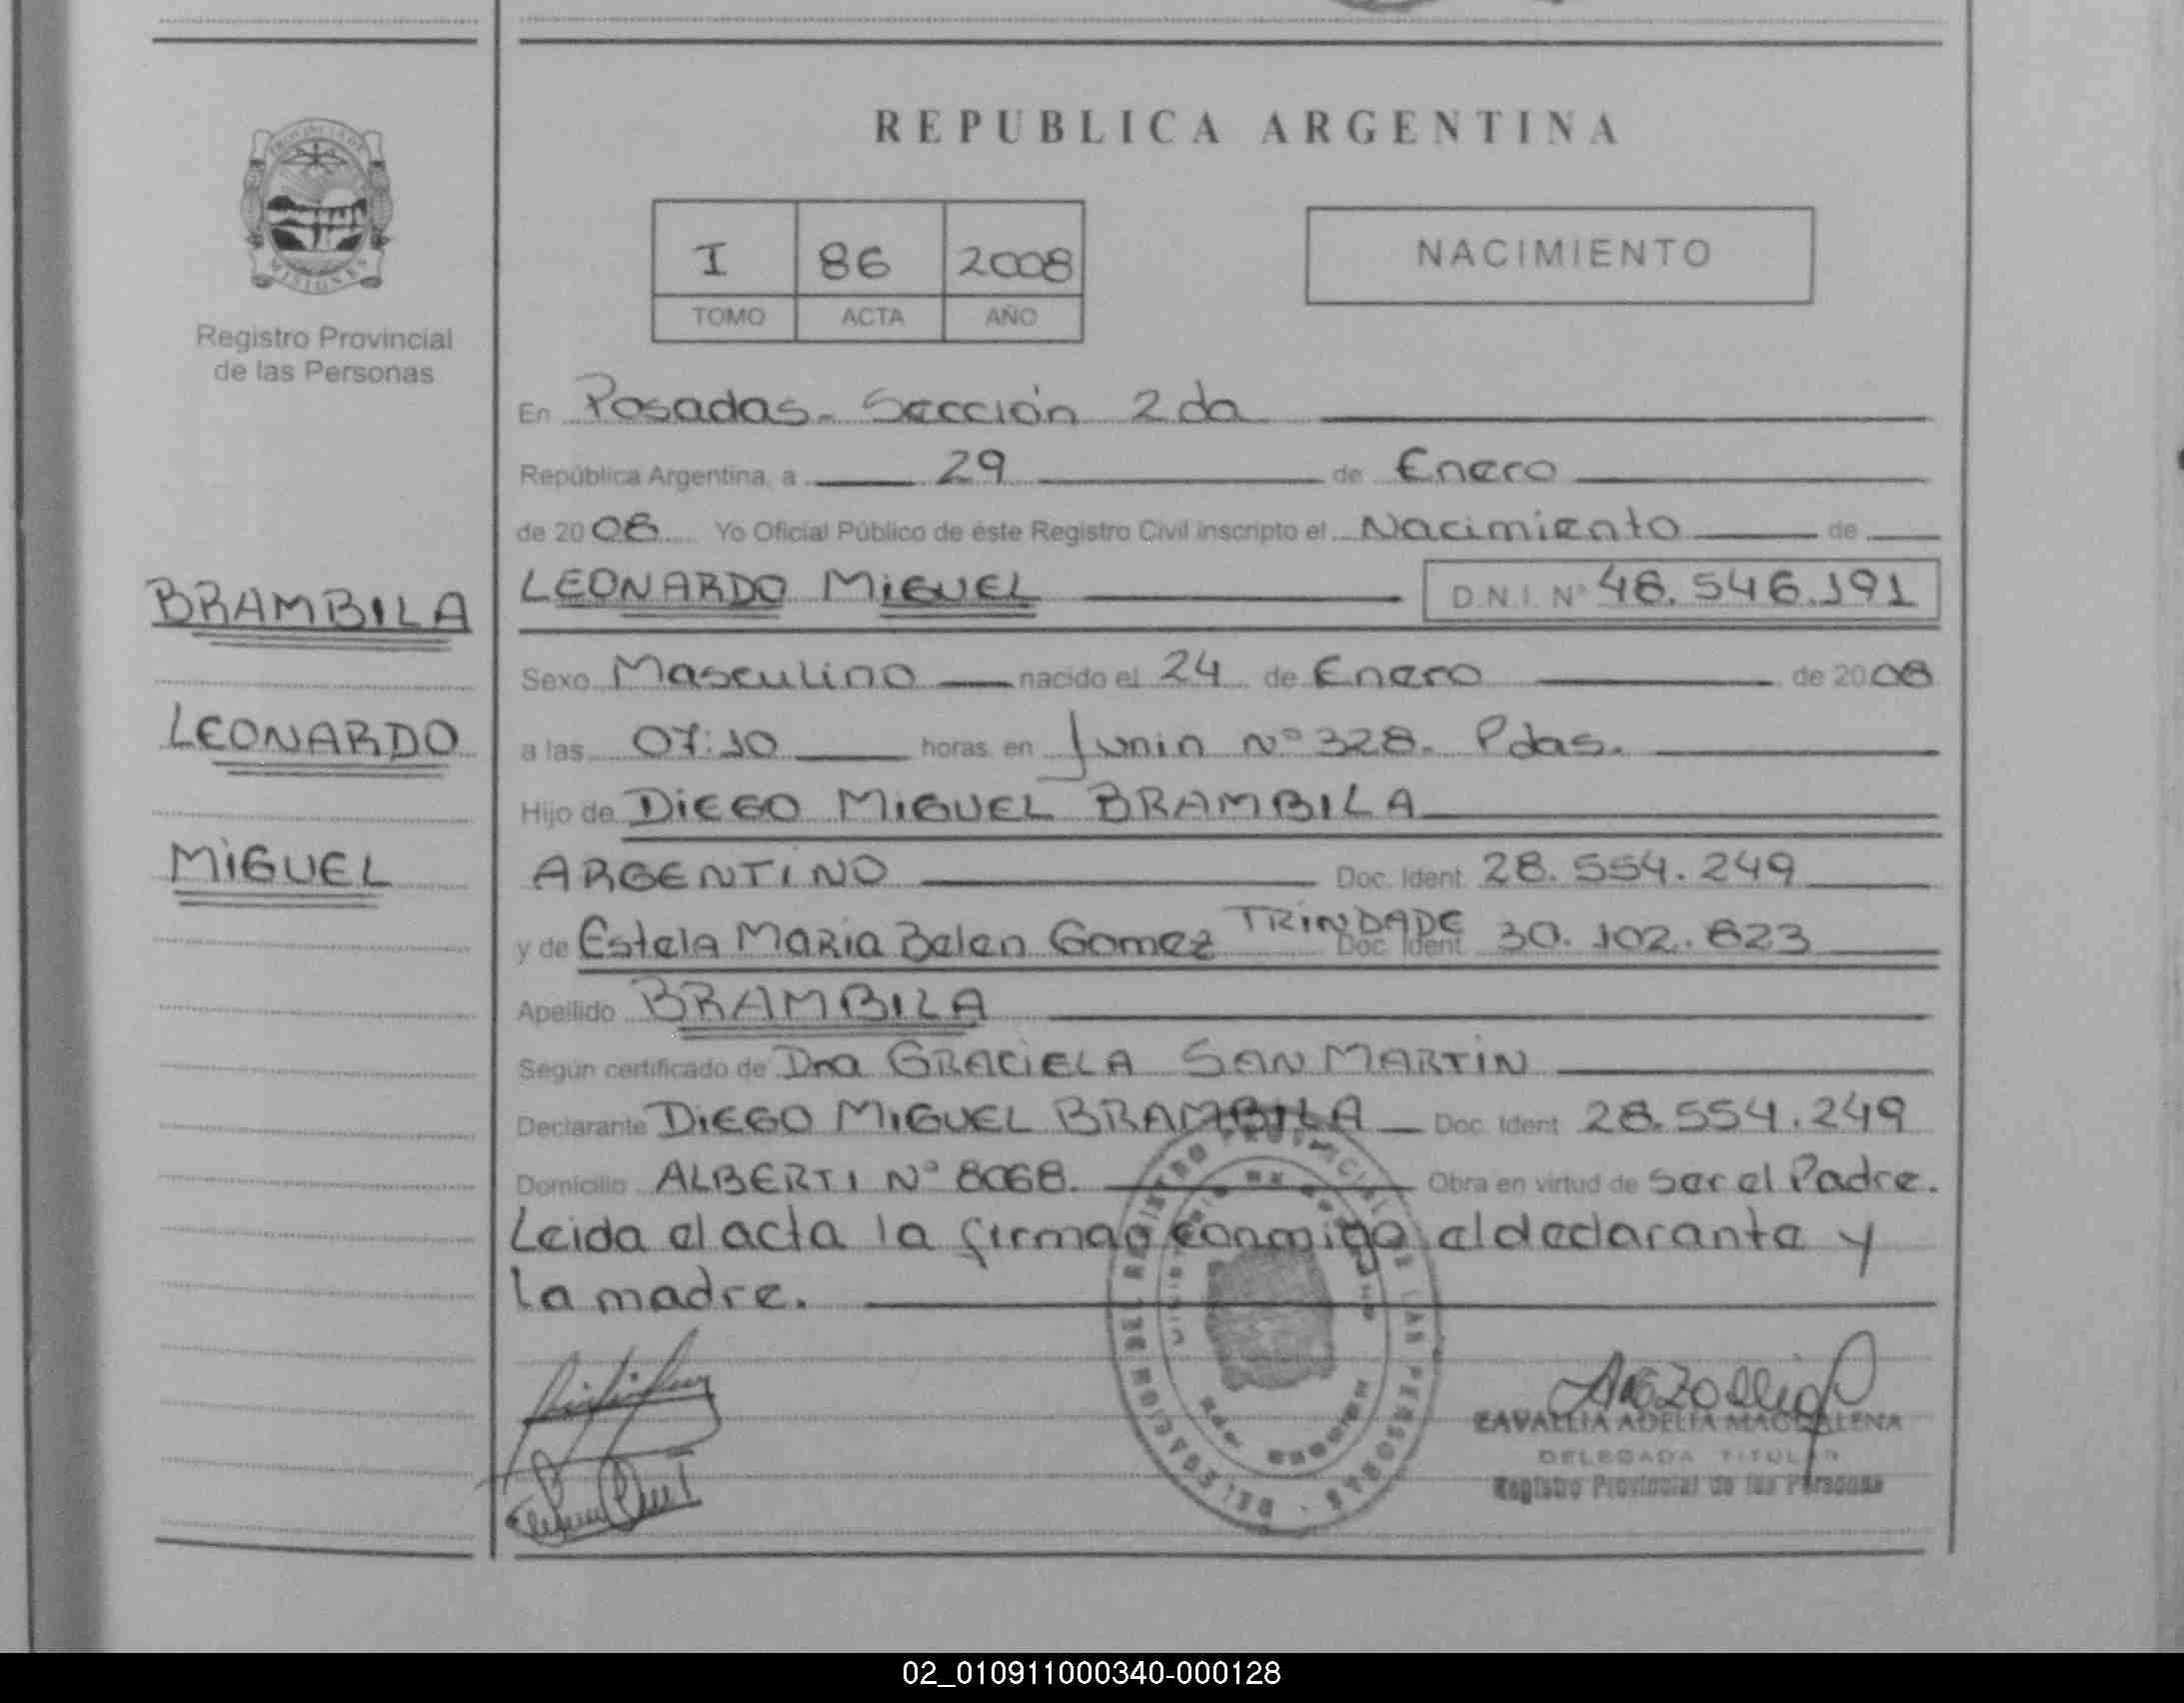 REPUBLICA ARGENTINA
PROVINCIA DE
MISIONES
Registro Provincial
de las Personas
I 86 2008
TOMO ACTA AÑO
NACIMIENTO
BRAMBILA
LEONARDO
MIGUEL
En Posadas. Sección 2da
República Argentina, a 29 de Enero
de 2008 Yo Oficial Público de éste Registro Civil inscripto el Nacimiento de
LEONARDO MIGUEL D.N.I. Nº 48.546.191
Sexo Masculino nacido el 24 de Enero de 2008
a las 07:10 horas en Junin Nº 328. Pdas.
Hijo de DIEGO MIGUEL BRAMBILA
ARGENTINO Doc. Ident 28.554.249
y de Estela Maria Belen Gomez TRINDADE Doc. Ident 30.102.623
Apellido BRAMBILA
Según certificado de Dra GRACIELA SAN MARTIN
Declarante DIEGO MIGUEL BRAMBILA Doc. Ident 28.554.249
Domicilio ALBERTI Nº 8068. Obra en virtud de ser el Padre.
Leida el acta la firman conmigo el declarante y
la madre.
ZAVALLIA ADELIA MAGDALENA
DELEGADA TITULAR
Registro Provincial de las Personas
DELEGACION DEL REGISTRO PROVINCIAL DE LAS PERSONAS
02_010911000340-000128